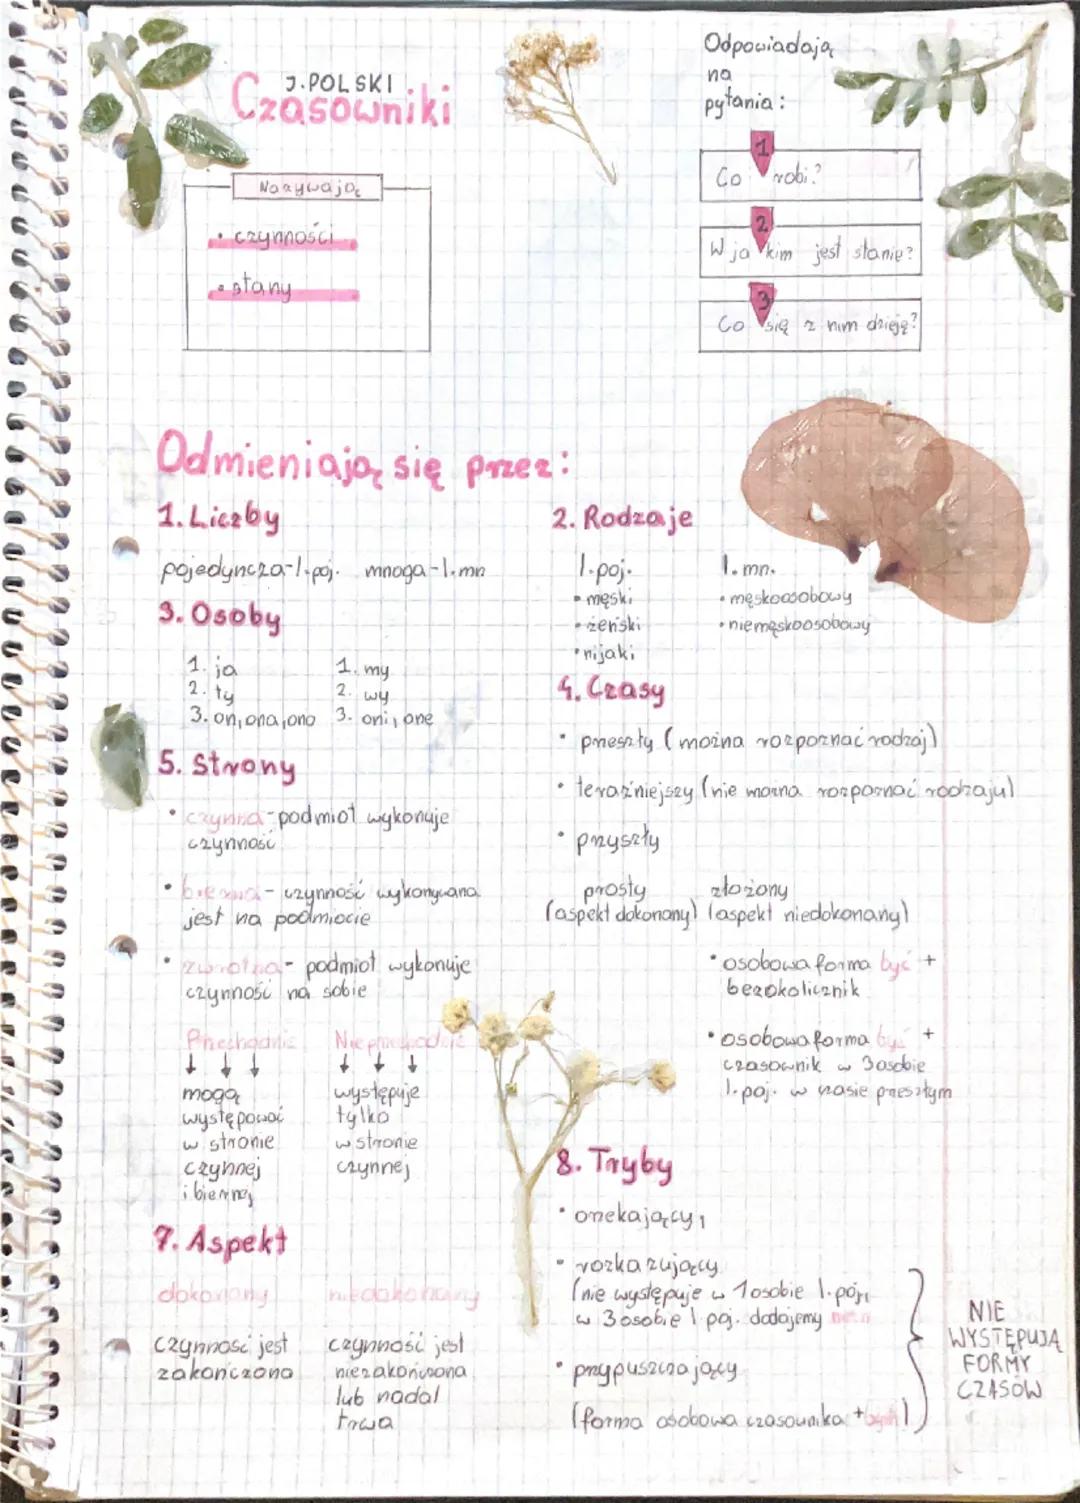 J.POLSKI
Czasowniki
Nazywają
• czynności
• stany
Odpowiadają
na
pytania:
1
Co robi?
2
W jakim jest stanie?
3
Co się z nim dzieję?
Odmieniają się przez:
1. Liczby
pojedyncza-l.poj. mnoga-l.mn
2. Rodzaje
l.poj.
• męski
• żeński
• nijaki
l.mn.
• męskoosobowy
• niemęskoosobowy
3. Osoby
1. ja
2. ty
3. on, ona, ono
1. my
2. wy
3. oni, one
4. Czasy
• przeszły (można rozpoznać rodzaj)
• teraźniejszy (nie można rozpoznać rodzaju)
• przyszły
prosty złożony
(aspekt dokonany) (aspekt niedokonany)
• osobowa forma być +
bezokolicznik
• osobowa forma być +
czasownik w 3 osobie
l.poj. w czasie przeszłym
5. Strony
• czynna - podmiot wykonuje
czynność
• bierna - czynność wykonywana
jest na podmiocie
• zwrotna - podmiot wykonuje
czynność na sobie
Przechodnie
mogą
występować
w stronie
czynnej
i biernej
Nieprzechodnie
występuje
tylko
w stronie
czynnej
7. Aspekt
dokonany
czynność jest
zakończona
niedokonany
czynność jest
niezakończona
lub nadal
trwa
8. Tryby
• orzekający,
• rozkazujący
(nie występuje w 1 osobie l.poj,
w 3 osobie l.poj. dodajemy
• przypuszczający
(forma osobowa czasownika +
NIE
WYSTĘPUJĄ
FORMY
CZASÓW